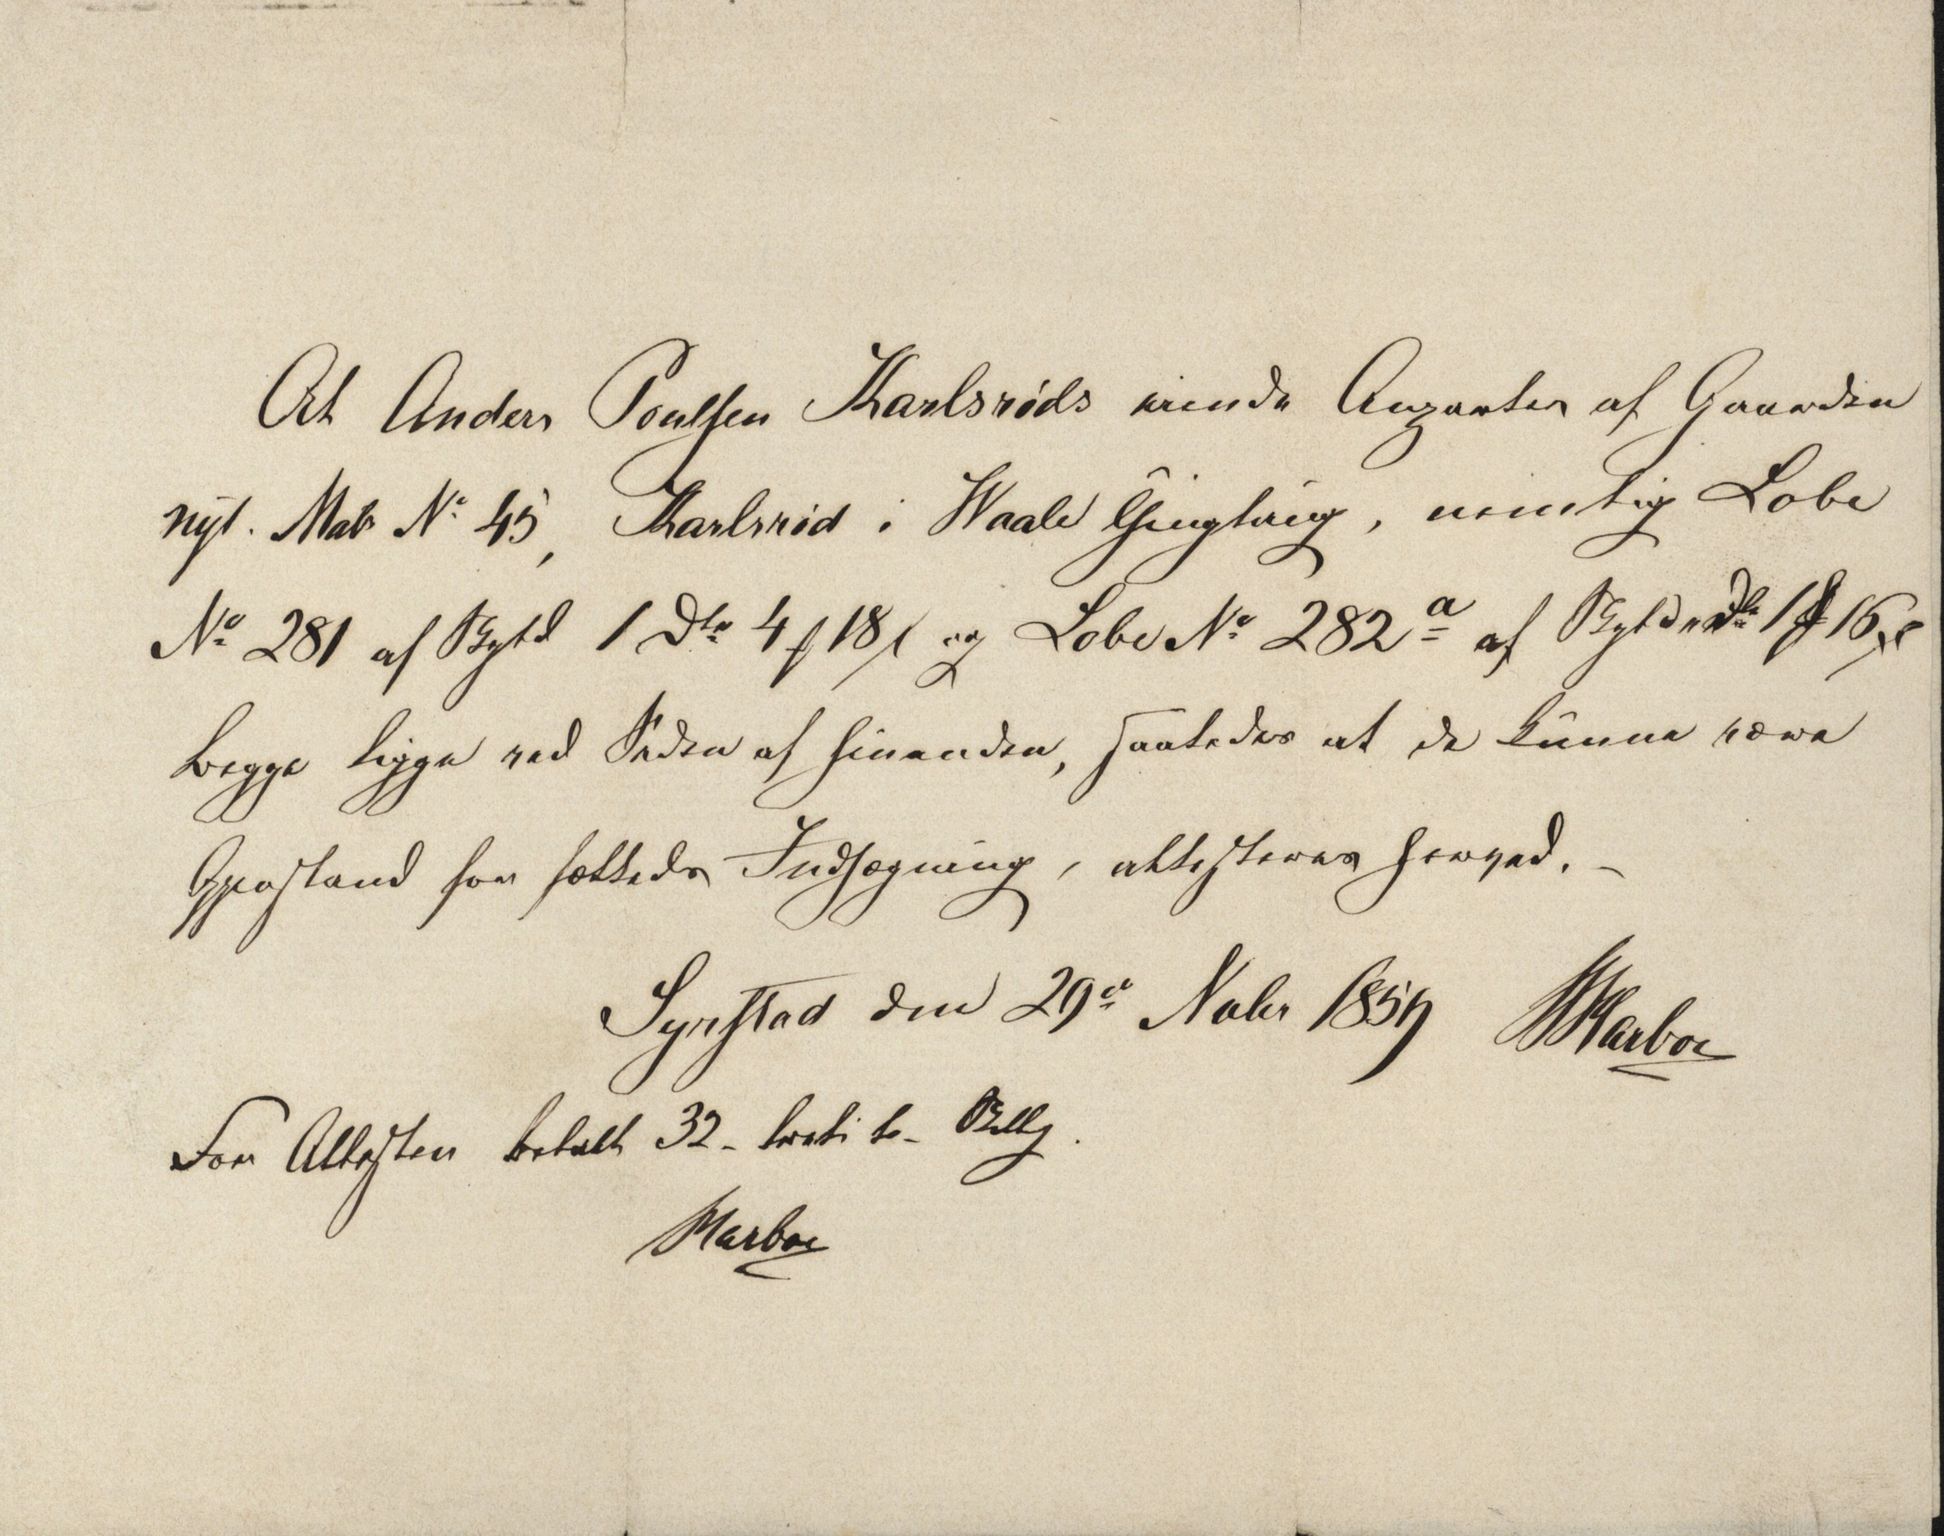 At Anders Poulsen Karlsröds eiende Anparter af Gaarden
nyt. Matr N° 45, Karlsröd i Waale Thinglaug, nemlig Løbe
N° 281 af Skyld 1 Dlr 4 ƒ 18 ſ og Løbe N° 282 a af Skyld Dlr 1 ƒ 16 ſ
begge ligge ved Siden af hinanden, saaledes at de kunne være
Gjenstand for fælleds Indhægning, attesteres herved. –
Synstad den 29de Novbr 1859 Marboe
For Attesten betalt 32 - treti to - Skillg.
Marboe